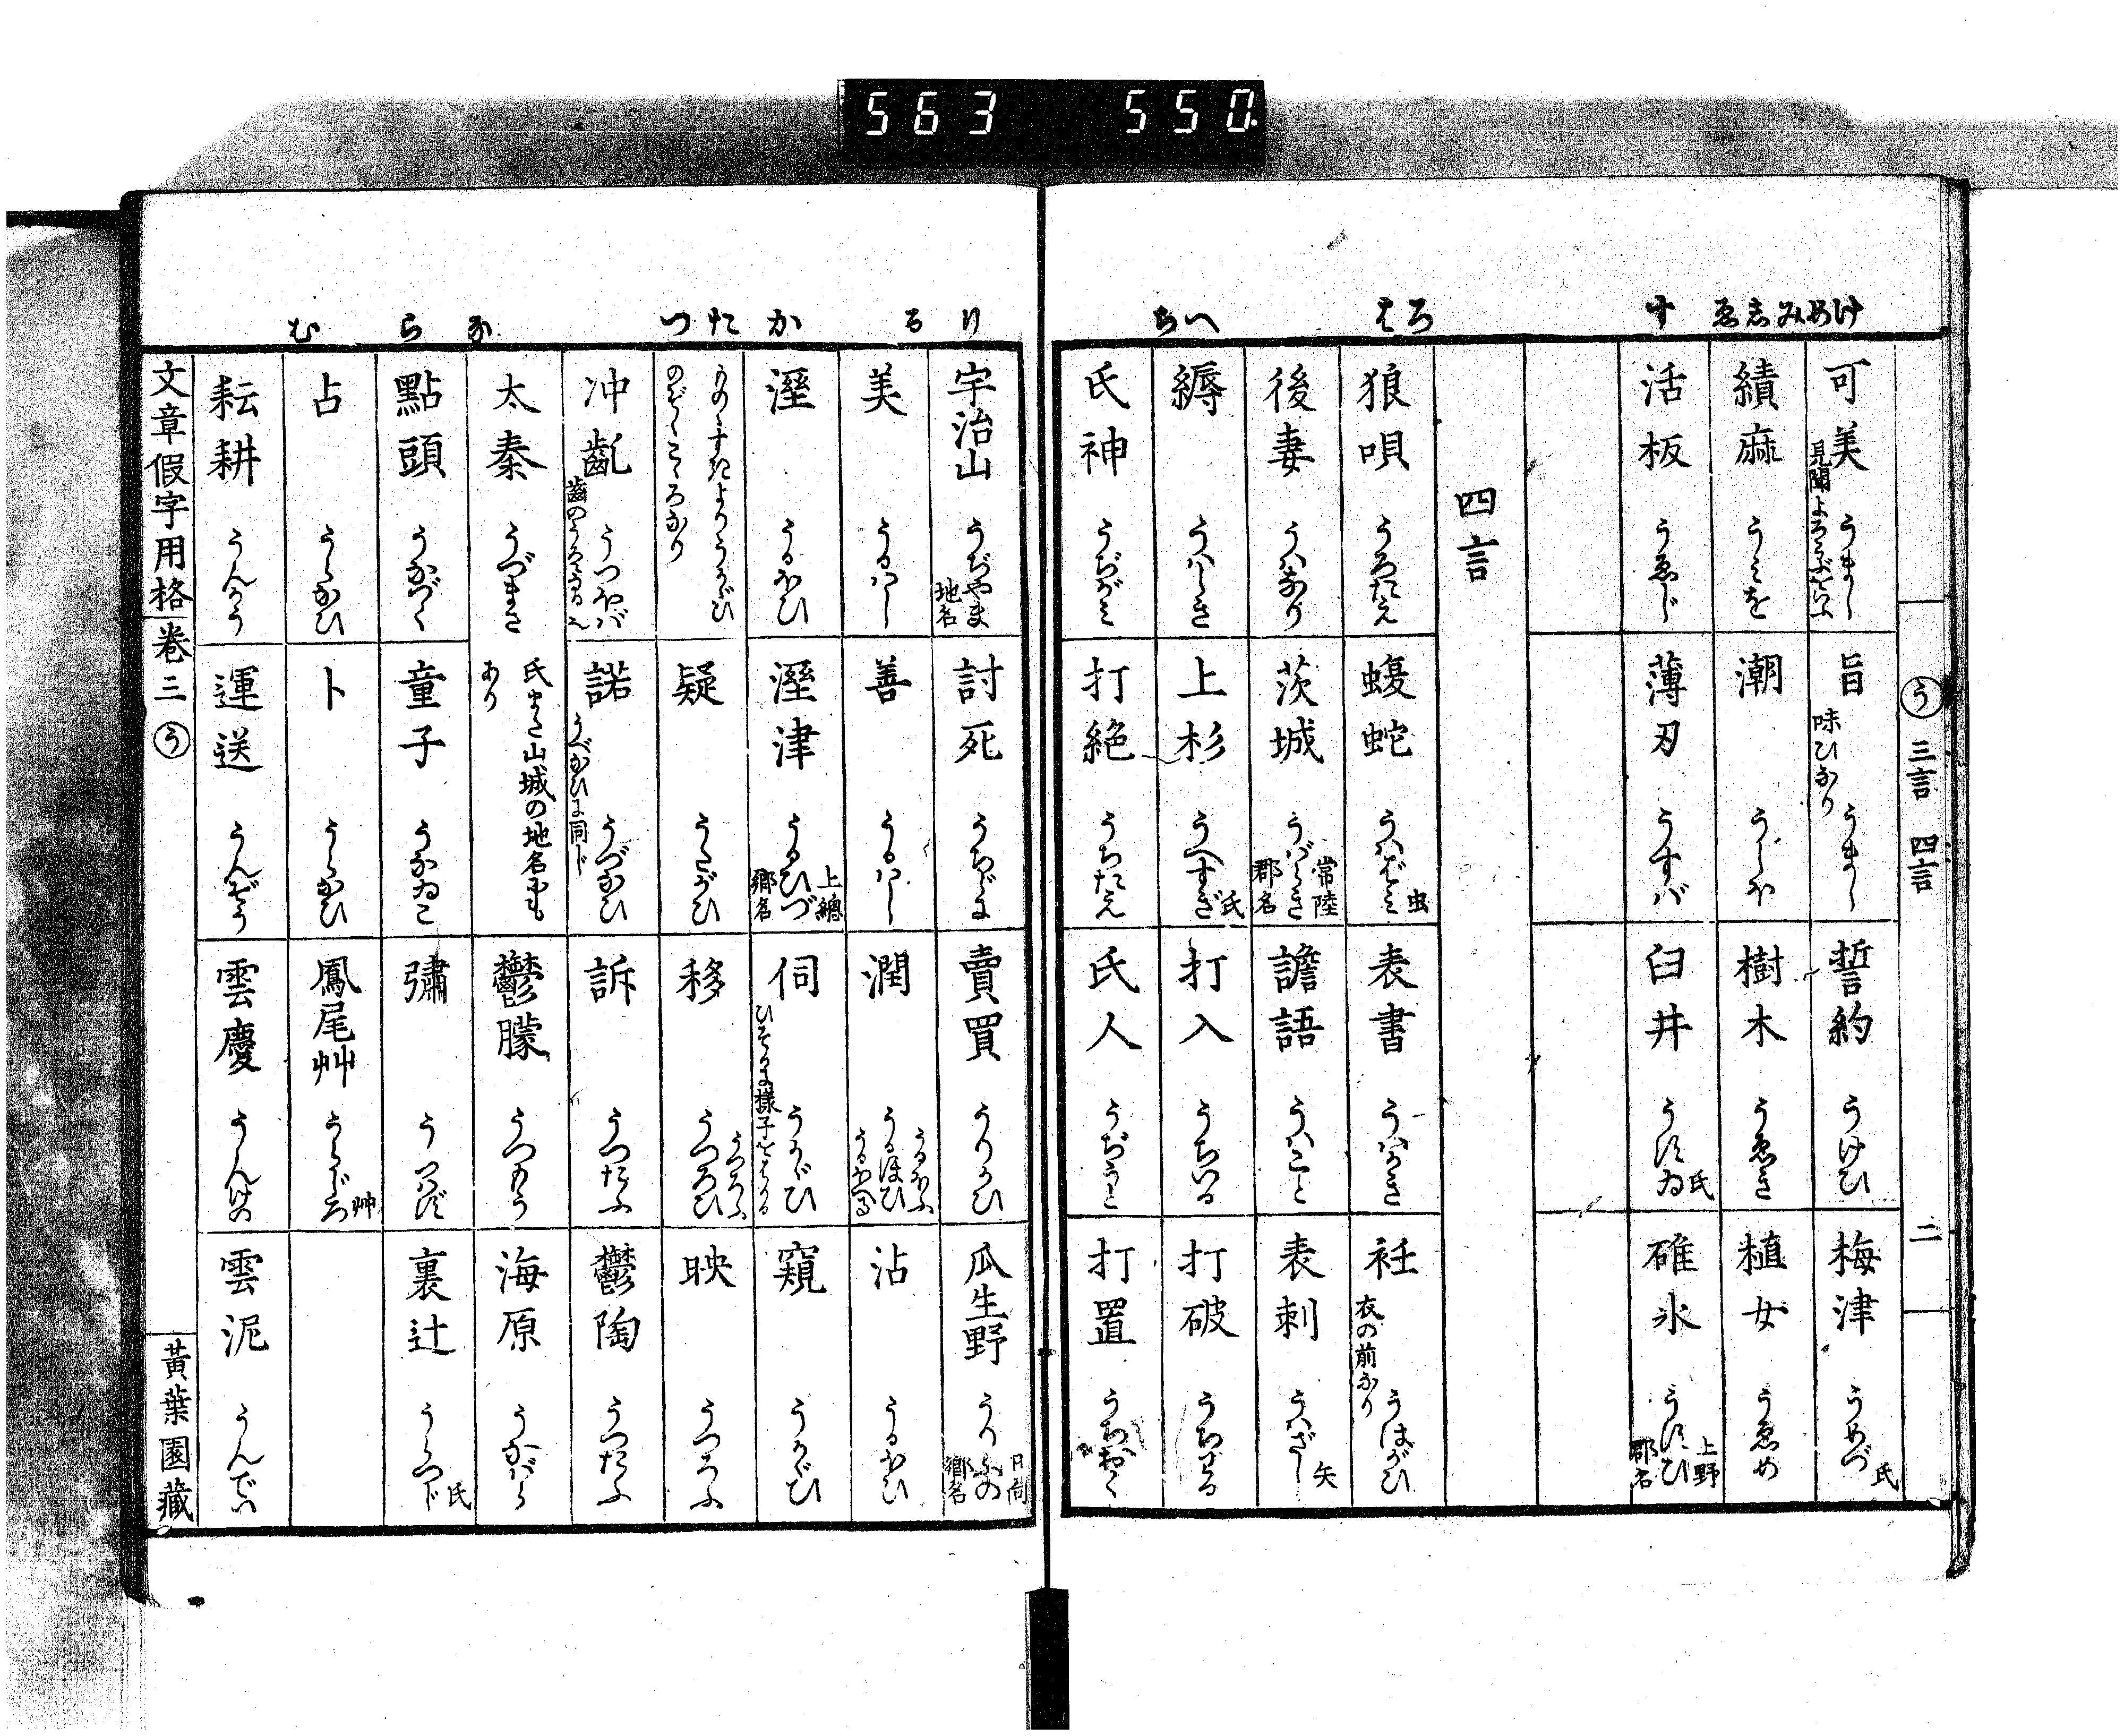 563 550
けめみしゑ す
ろ は
へ ち
う 三言 四言 二
可美 うまし 見聞よろこぶをいふ
旨 うまし 味ひなり
誓約 うけひ
梅津 うめづ 氏
績麻 うみを
潮 うしほ
樹木 うゑき
植女 うゑめ
活板 うゑじ
薄刃 うすバ
臼井 うすゐ 氏
碓氷 うすひ 上野郡名
四言
狼唄 うろたえ
蝮蛇 うハばミ 虫
表書 うハがき
衽 うはがひ 衣の前なり
後妻 うハなり
茨城 うバらき 常陸郡名
譫語 うハこと
表刺 うハざし 矢
縟 うハしき
上杉 うへすぎ 氏
打入 うちいる
打破 うちやぶる
氏神 うぢがミ
打絶 うちたえ
氏人 うぢうと
打置 うちおく
り る
か た つ
な ら む
宇治山 うぢやま 地名
討死 うちじに
賣買 うりかひ
瓜生野 うりふの 日向郷名
美 うるハし
善 うるハし
潤 うるほふ うるほひ うるほへる
沾 うるほひ
溼 うるほひ
溼津 うるひづ 上總郷名
伺 うかゞひ ひそかに様子をはかる
窺 うかゞひ
ものゝすきよりうかゞひのぞくこゝろなり
疑 うたがひ
移 うつろふ うつろひ
映 うつろふ
冲齔 うつほバ 齒のうろなる也
諾 うづなひ うべなひに同じ
訴 うつたふ
鬱陶 うつたふ
太秦 うづまさ 氏また山城の地名にもあり
鬱朦 うつもう
海原 うなバら
點頭 うなづく
童子 うなゐこ
彇 うらはず
裏辻 うらつじ 氏
占 うらなひ
卜 うらなひ
鳳尾艸 うらじろ 艸
耘耕 うんかう
運送 うんそう
雲慶 うんけい
雲泥 うんでい
文章假字用格 卷三 う 黃葉園藏